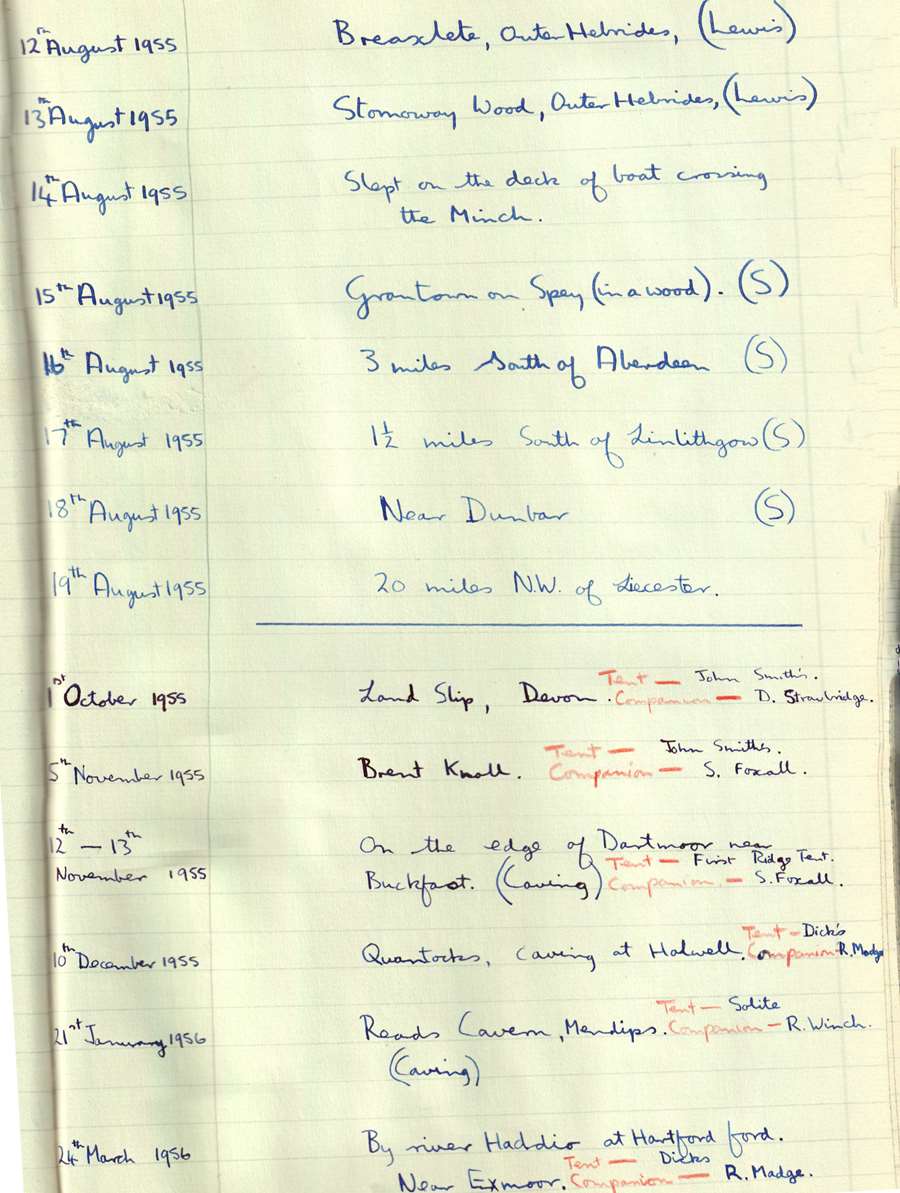 12th August 1955 Breaxlete, Outer Hebrides, (Lewis)
13th August 1955 Stornoway Wood, Outer Hebrides, (Lewis)
14th August 1955 Slept on the deck of boat crossing
the Minch.
15th August 1955 Grantown on Spey (in a wood). (S)
16th August 1955 3 miles South of Aberdeen (S)
17th August 1955 1½ miles South of Linlithgow (S)
18th August 1955 Near Dunbar (S)
19th August 1955 20 miles N.W. of Liecester.
Tent — John Smith's.
1st October 1955 Land Slip, Devon. Companion — D. Strawbridge.
Tent — John Smiths.
5th November 1955 Brent Knoll. Companion — S. Foxall.
12th — 13th On the edge of Dartmoor near
Tent — First Ridge Tent.
November 1955 Buckfast. (Caving) Companion. — S. Foxall.
Tent — Dick's
10th December 1955 Quantocks, caving at Holwell. Companion - R. Madge
Tent — Solite
21st January 1956 Reads Cavern, Mendips. Companion — R. Winch.
(Caving)
24th March 1956 By river Haddio at Hartford ford.
Tent — Dicks
Near Exmoor. Companion — R. Madge.